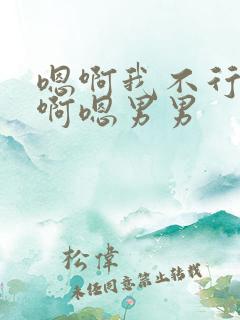 嗯啊我不行
啊嗯男男
松偉
未经同意禁止转载